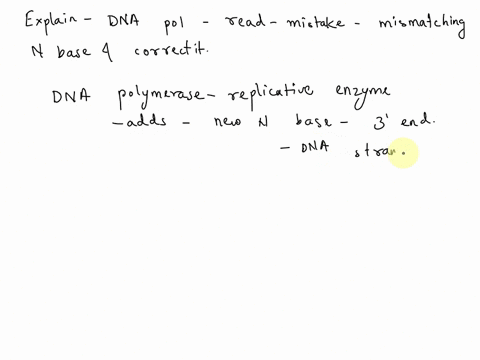 Explain - DNA pol - read - mistake - mismatching
N base & correct it.
DNA polymerase - replicative enzyme
- adds - new N base - 3' end.
- DNA stran